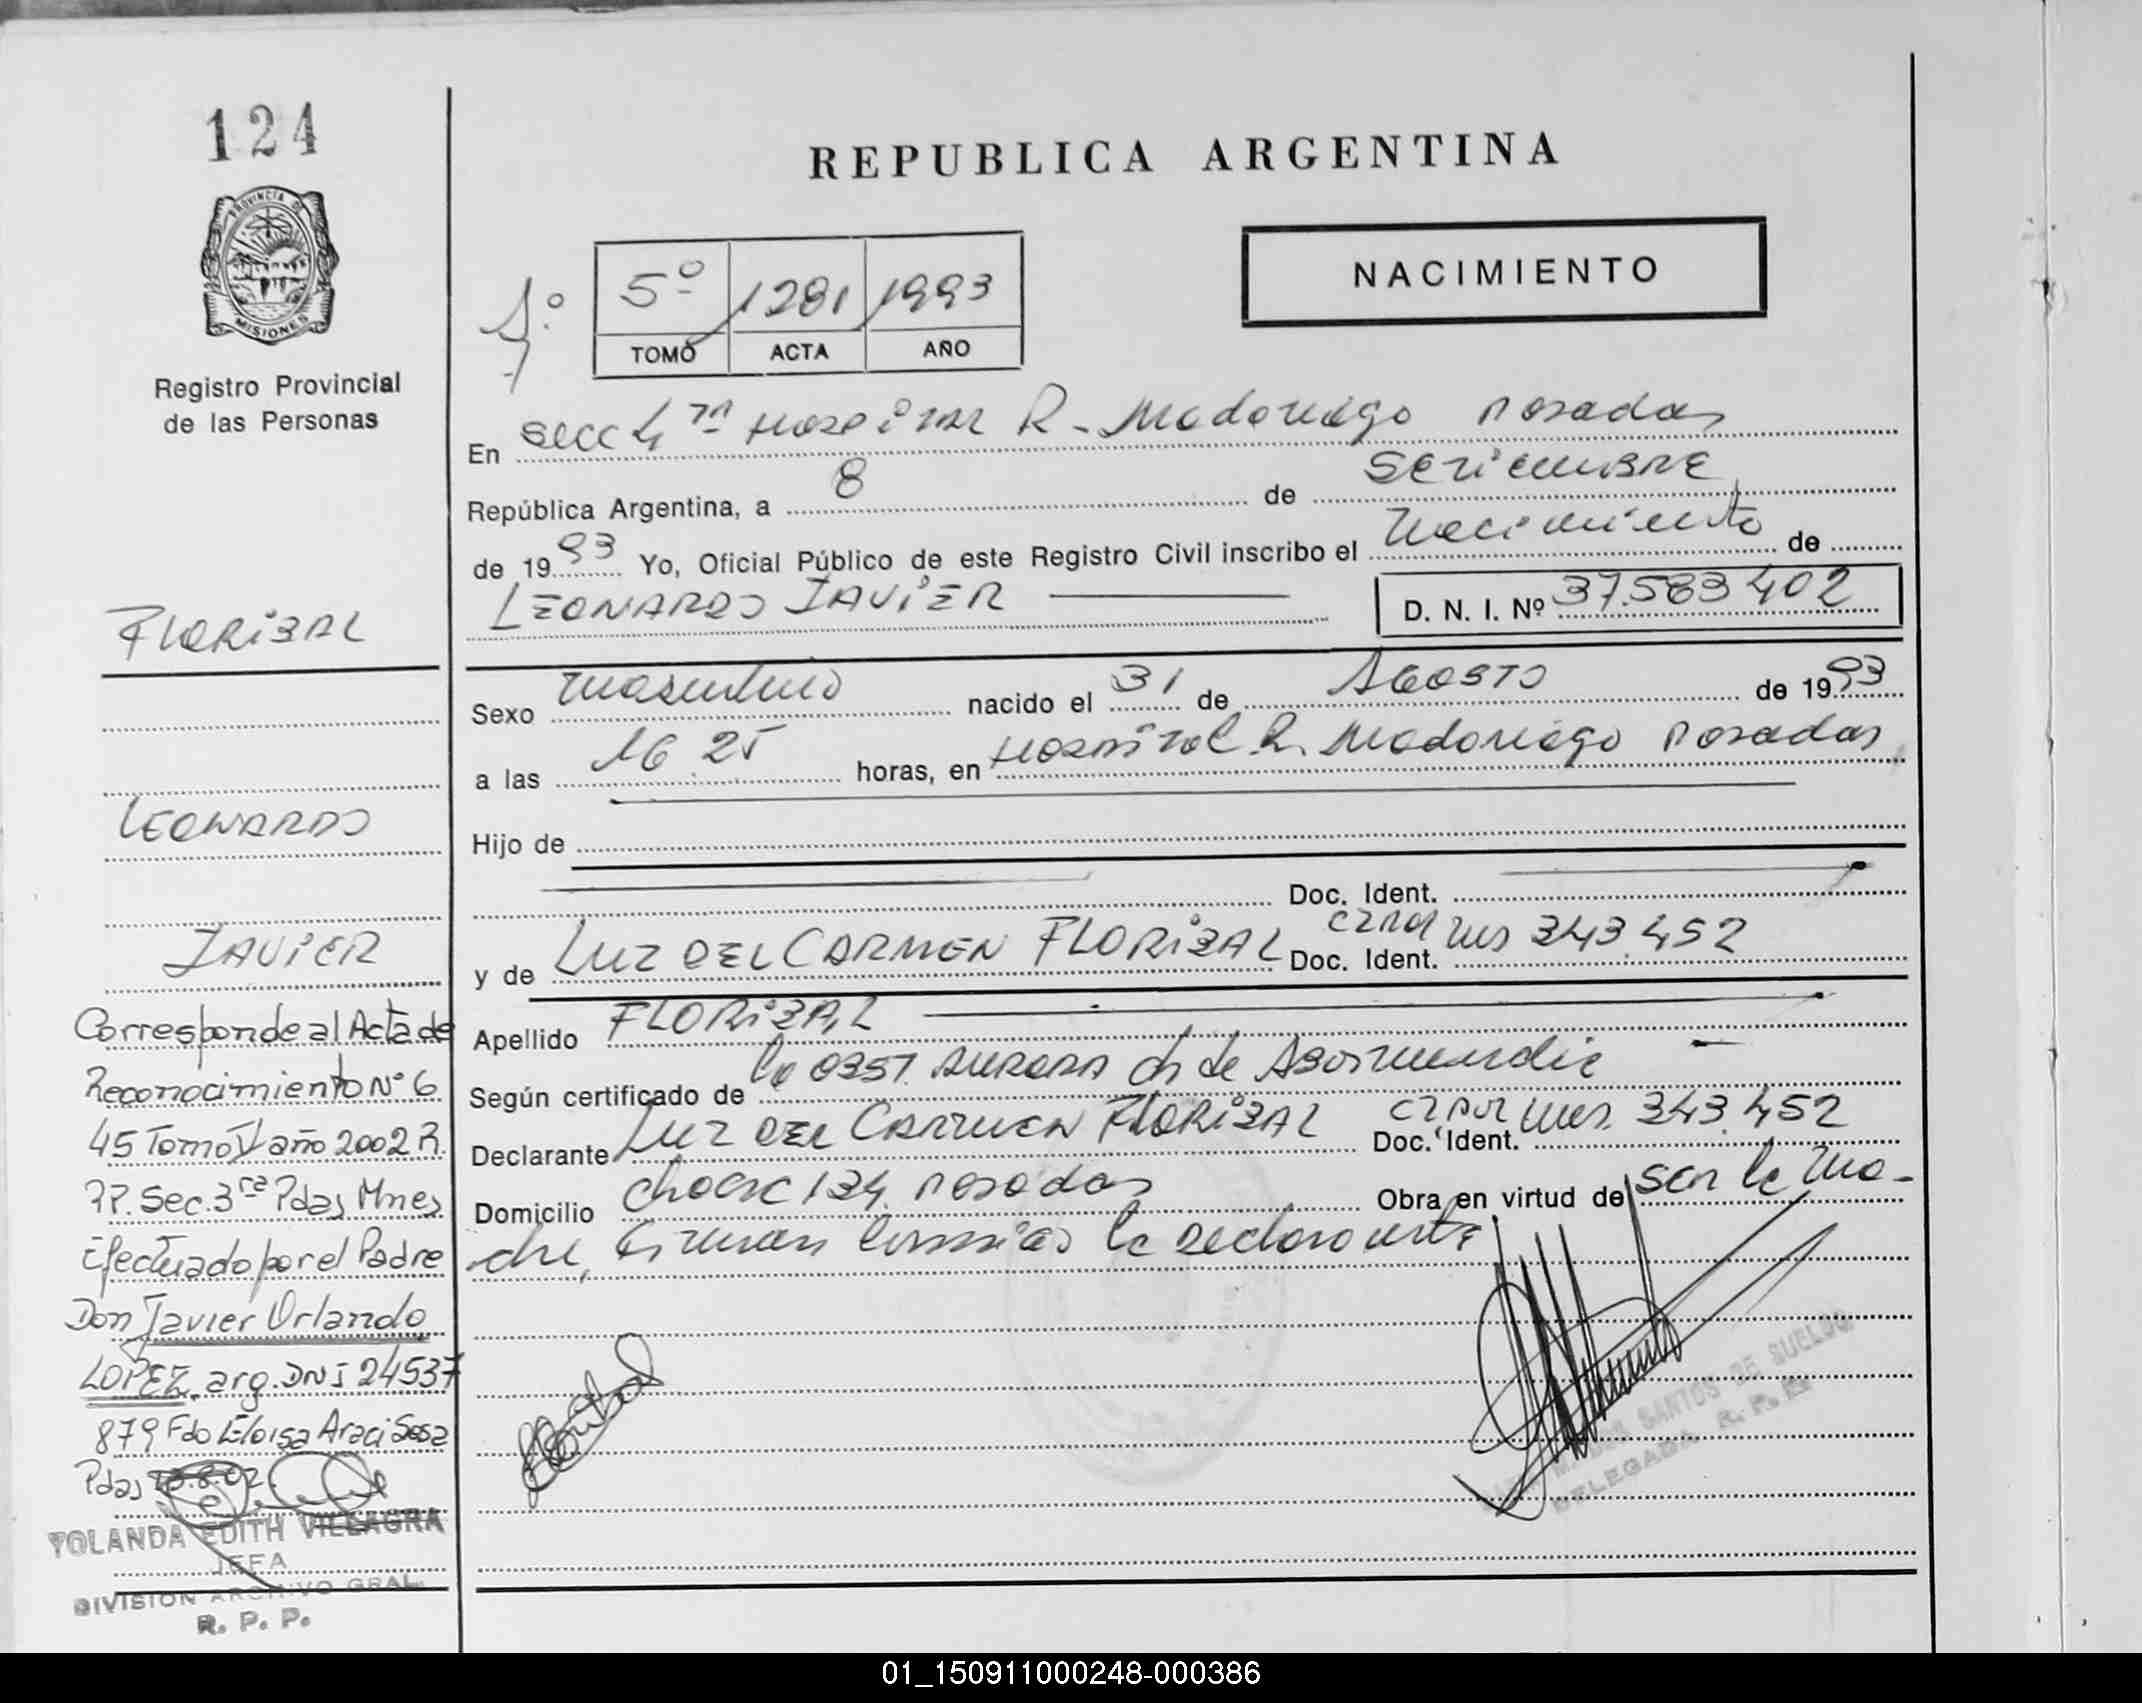 124
PROVINCIA DE
MISIONES
Registro Provincial
de las Personas
REPUBLICA ARGENTINA
NACIMIENTO
5º 1281 1993
TOMO ACTA AÑO
En Secc 4ta Hospital R. Madariaga Posadas
República Argentina, a 8 de Setiembre
de 1993 Yo, Oficial Público de este Registro Civil inscribo el Nacimiento de
LEONARDO JAVIER D. N. I. Nº 37.583402
Sexo masculino nacido el 31 de AGOSTO de 1993
a las 16 25 horas, en Hospital R. Madariaga Posadas
Hijo de
Doc. Ident.
y de LUZ DEL CARMEN FLORIBAL Doc. Ident. Mns 343.452
Apellido FLORIBAL
Según certificado de la obst. AURORA de
Declarante LUZ DEL CARMEN FLORIBAL Doc. Ident. Mns. 343.452
Domicilio 134 Posadas Obra en virtud de ser la ma-
dre, la declarante
FLORIBAL
LEONARDO
JAVIER
Corresponde al Acta de
Reconocimiento Nº 6
45 Tomo V año 2002 R.
PP. Sec. 3ra Pdas Mnes
Efectuado por el Padre
Don Javier Orlando
LOPEZ arg. DNI 24537
879 Fdo Eloisa Araci Sosa
Pdas
YOLANDA EDITH VILLAGRA
JEFA
DIVISION ARCHIVO GRAL.
R. P. P.
SANTOS DE SUELDO
DELEGADA R. P. P.
01_150911000248-000386